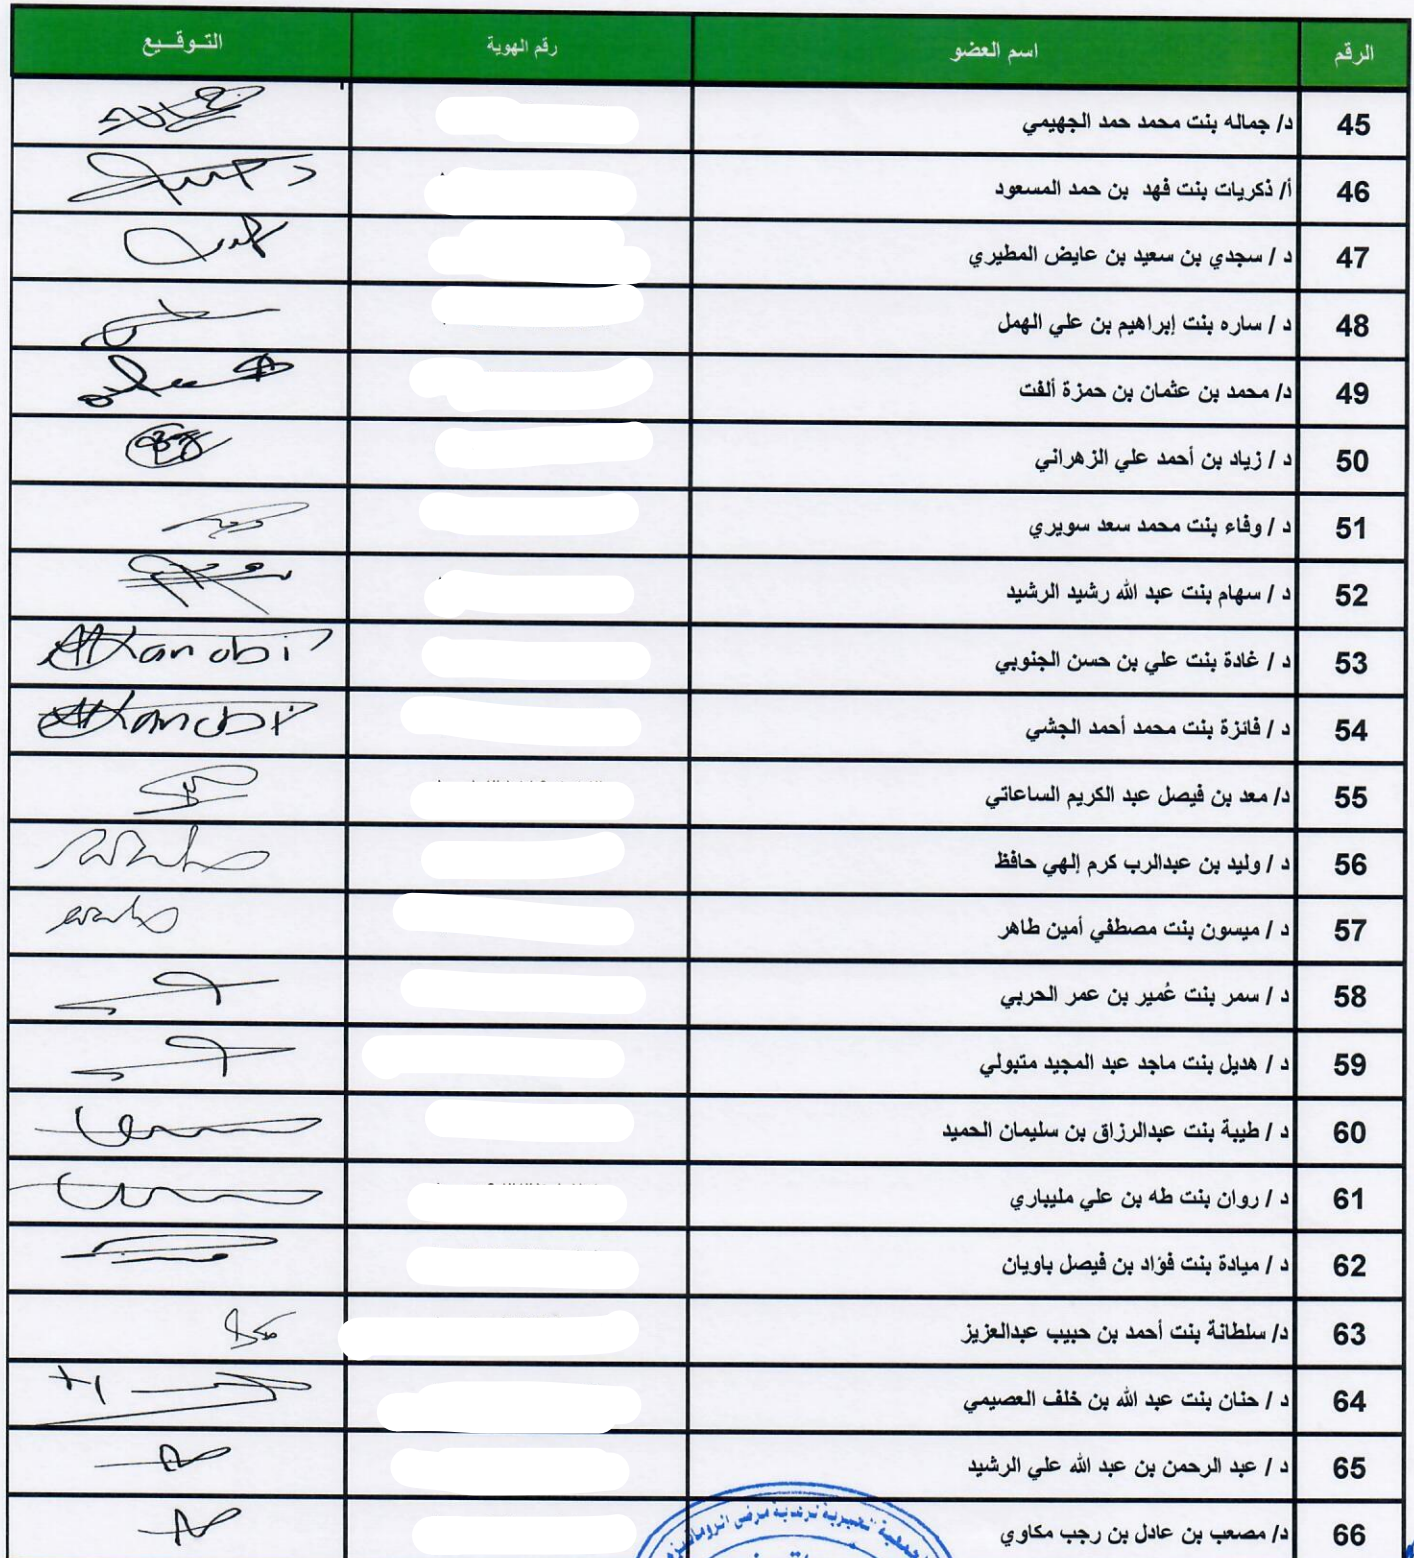 الرقم اسم العضو رقم الهوية التـوقـيع
45 د/ جماله بنت محمد حمد الجهيمي
46 أ/ ذكريات بنت فهد بن حمد المسعود
47 د / سجدي بن سعيد بن عايض المطيري
48 د / ساره بنت إبراهيم بن علي الهمل
49 د/ محمد بن عثمان بن حمزة ألفت
50 د / زياد بن أحمد علي الزهراني
51 د / وفاء بنت محمد سعد سويري
52 د / سهام بنت عبد الله رشيد الرشيد
53 د / غادة بنت علي بن حسن الجنوبي
54 د / فائزة بنت محمد أحمد الجشي
55 د/ معد بن فيصل عبد الكريم الساعاتي
56 د / وليد بن عبدالرب كرم إلهي حافظ
57 د / ميسون بنت مصطفي أمين طاهر
58 د / سمر بنت عُمير بن عمر الحربي
59 د / هديل بنت ماجد عبد المجيد متبولي
60 د / طيبة بنت عبدالرزاق بن سليمان الحميد
61 د / روان بنت طه بن علي مليباري
62 د / ميادة بنت فؤاد بن فيصل باويان
63 د/ سلطانة بنت أحمد بن حبيب عبدالعزيز
64 د / حنان بنت عبد الله بن خلف العصيمي
65 د / عبد الرحمن بن عبد الله علي الرشيد
66 د/ مصعب بن عادل بن رجب مكاوي